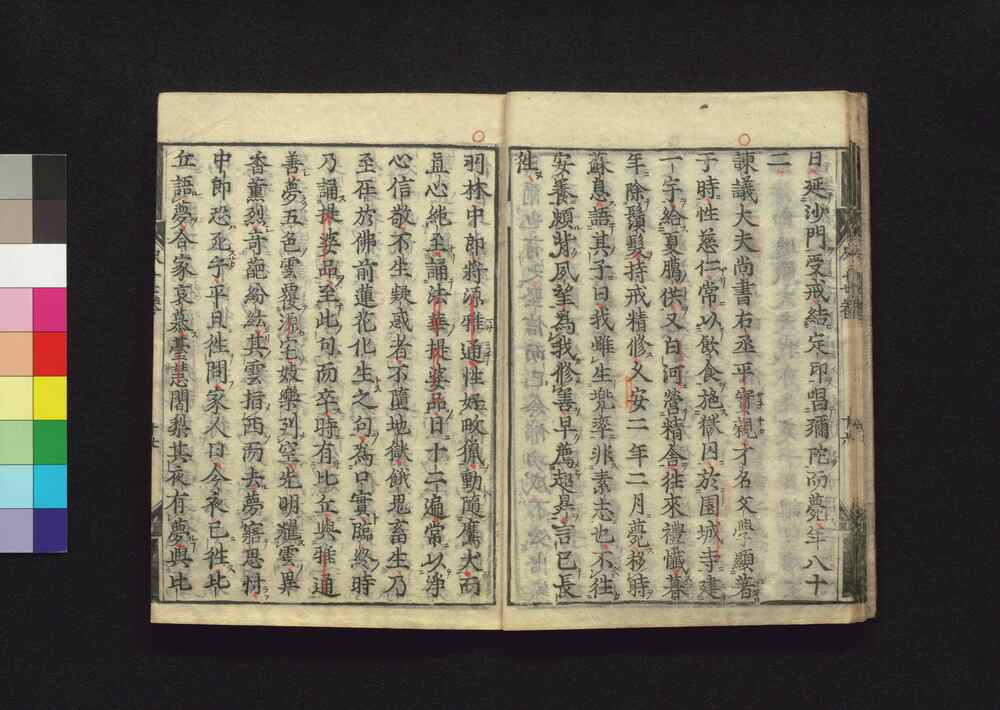 日延沙門受戒結定印唱彌陀而薨年八十
二
諫議大夫尚書右丞平實親才名文學顯著
于時性慈仁常以飲食施獄囚於園城寺建
一宇給夏臈供又白河營精舍往來禮懺暮
年除鬚髮持戒精修久安二年二月薨移時
蘇息語其子曰我雖生兜率非素志也不往
安養頗背夙望為我修善早薦超昇言已長
往
羽林中郎將源雅通性好畋獵動隨鷹犬而
直心純至誦法華提婆品日十二遍常以淨
心信敬不生疑惑者不墮地獄餓鬼畜生乃
至在於佛前蓮花化生之句為口實臨終時
乃誦提婆品至此句而卒時有比丘與雅通
善夢五色雲覆源宅妓樂列空光明耀雲異
香薰烈奇葩紛紜其雲指西而去夢寤思忖
中郎恐死乎平旦往問家人曰今夜已往比
丘語夢合家哀慕臺慧闍梨其夜有夢與比